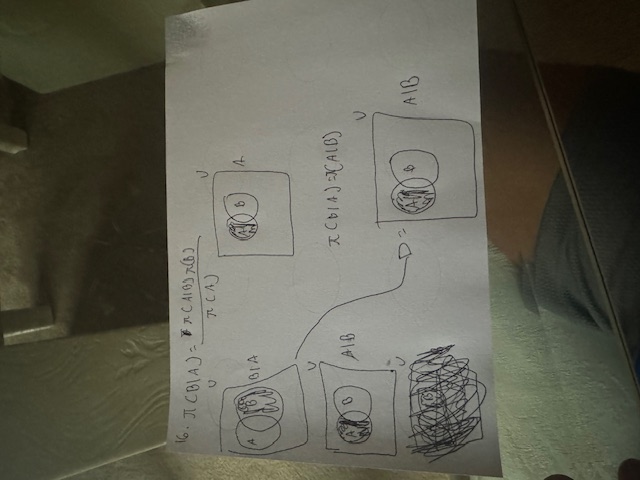 16. π(B|A) = π(A|B) π(B)
π(A)
U
A B B|A
U
A B A|B
U
B
U
A B A
π(b|A) = π(A|B)
=
U
A B A|B